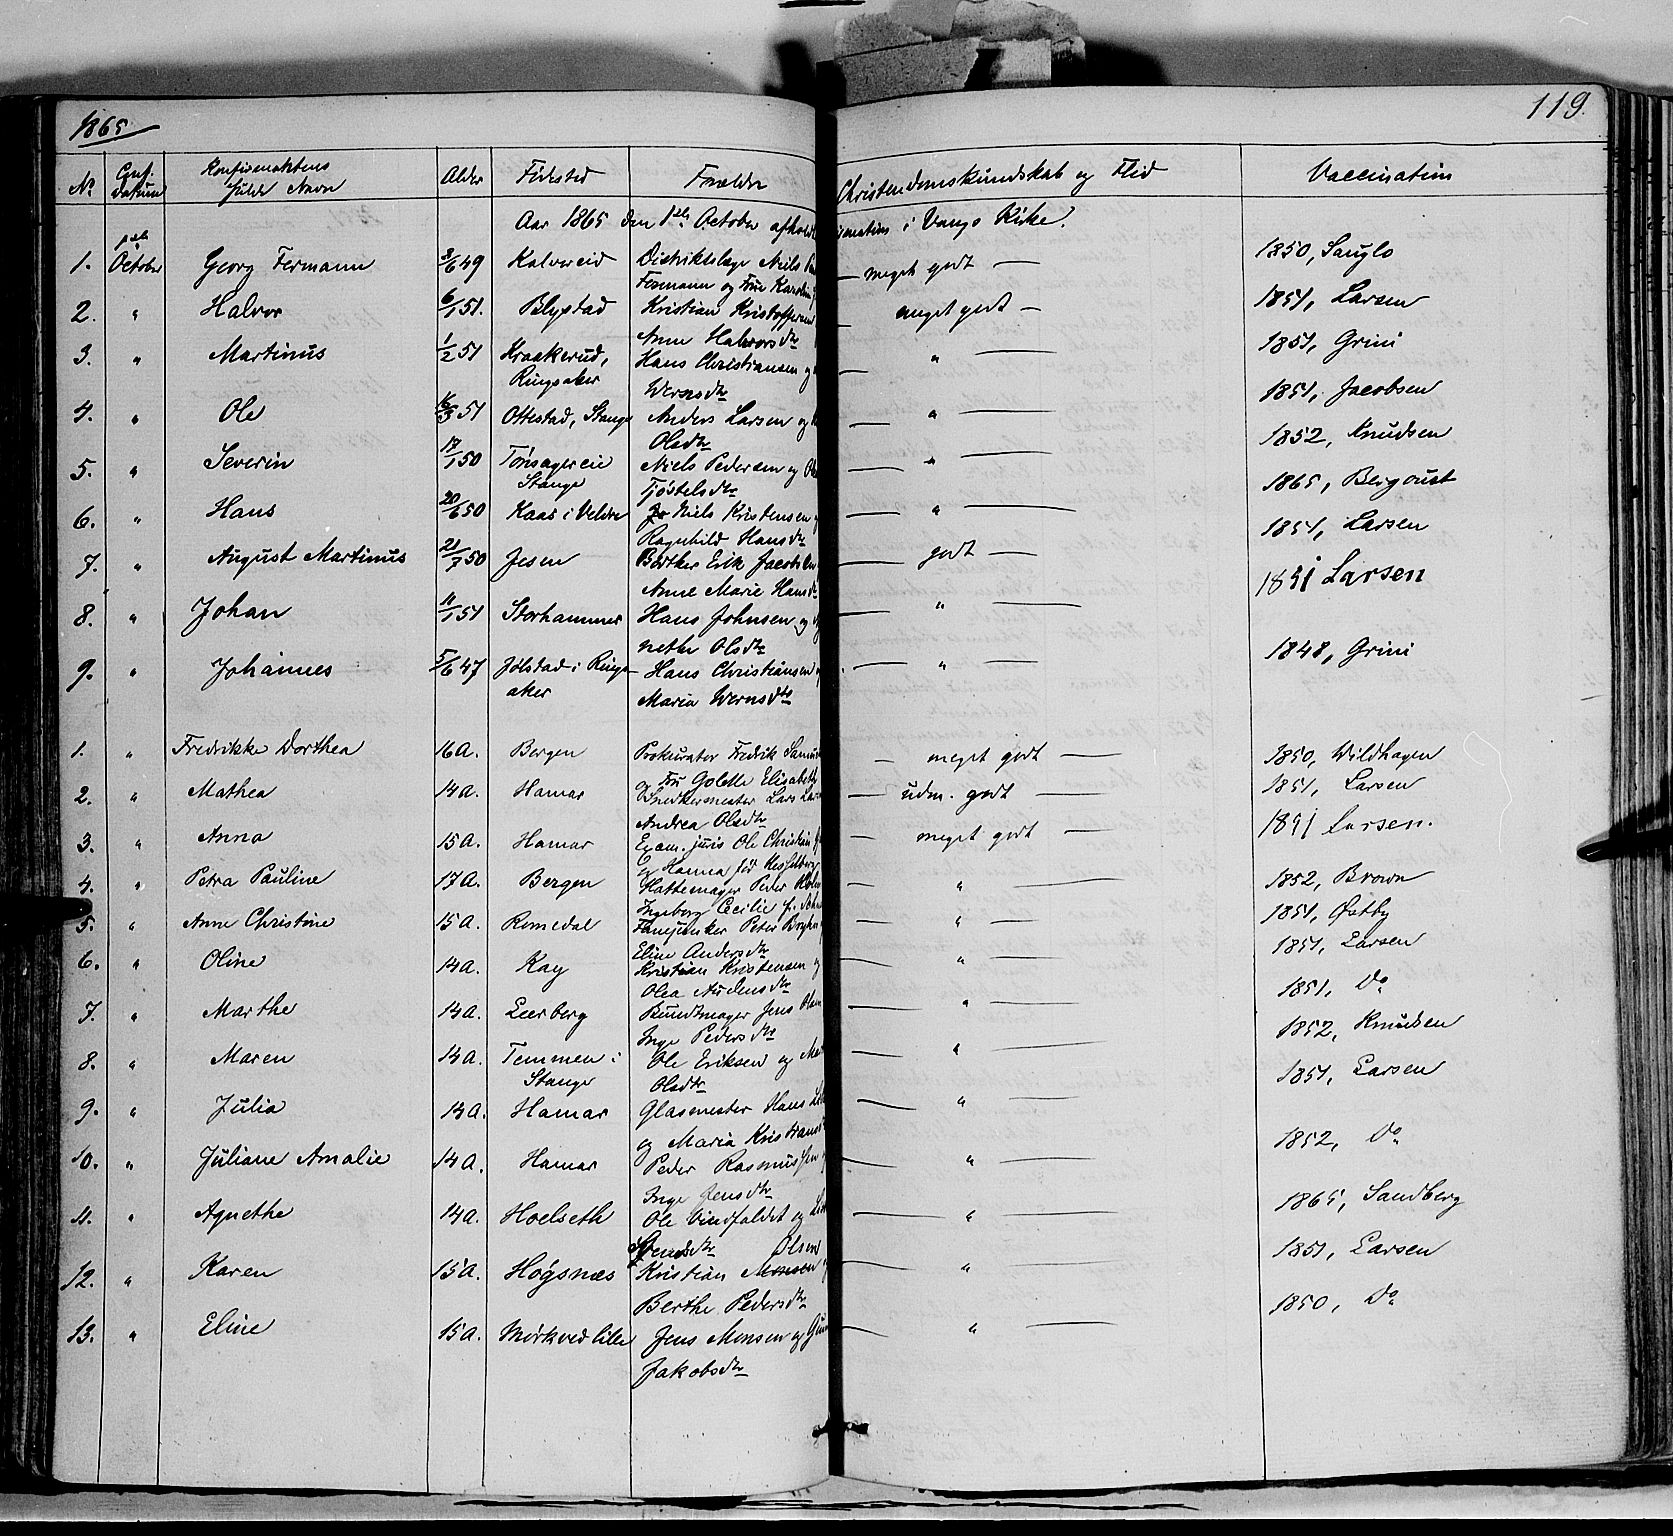 1865
119.
No Conf. Datum Konfirmantens fulde Navn Alder Fødested Forældre Christendomskundskab og Flid Vaccination
Aar 1865 den 1ste October afholdt i Vangs Kirke.
1. 1ste October Georg Fermann 3/6 49 Kalvereid Distriktslæge Niels meget godt — 1850, Sauglo
Fermann og Frue Karoline
2. " Halvor 6/1 51. Blystad Kristian Kristoffersen meget godt — 1851, Larsen
Anne Halvorsdtr
3. " Martinus 1/2 51 Kraakerud, Hans Christiansen og " — 1851, Grini
Ringsaker Wernsdtr
4. " Ole 16/3 51 Ottestad, Stange Anders Larsen og " — 1851, Jacobsen
Olsdtr
5. " Severin 17/1 50 Tønsagereie Niels Pedersen og " 1852, Knudsen
Stange Tjøstelsdtr
6. " Hans 20/6 50 Kaas i Veldre Niels Kristensen " — 1865, Bergqust
Ragnhild Hansdtr
7. " August Martinus 21/7 50 Jesen Bødtker Erik Jacobsen godt — 1851, Larsen
Anne Marie Hansdtr
8. " Johan 11/1 51 Storhammer Hans Johnsen og " — 1851 Larsen
nethe Olsdtr
9. " Johannes 5/6 47 Jølstad i Rings- Hans Christiansen " — 1848, Grini
aker Maria Wernsdtr
1. " Fredrikke Dorthea 16 A. Bergen Prokurator Fredrik meget godt — 1850, Wildhagen
og Fru Golette Elisabeth
2. " Mathea 14 A. Hamar Snedkermester Lars udm. godt — 1851, Larsen
Andrea Olsdtr
3. " Anna 15 A. Hamar Exam. juris Ole Christian meget godt — 1851 Larsen.
og Hanna fød Hesselberg
4. " Petra Pauline 17 A. Bergen Hattemager Peder " — 1852, Brown
Ingeborg Cecilie f.
5. " Anne Christine 15 A. Romedal Fanejunker Peter " — 1851, Østby
Eline Andersdtr
6. " Oline 14 A. Kay Kristian Kristensen og " — 1851, Larsen
Olea Audensdtr
7. " Marthe 14 A. Leerberg Bundtmager Jens Olsen " — 1851, Do
Inge Pedersdtr
8. " Maren 14 A. Temmen i Ole Eriksen og " — 1852, Knudsen
Stange Olsdtr
9. " Julia 14 A. Hamar Glasmester Hans " — 1851, Larsen
og Maria Kristians
10. " Juliane Amalie 14 A. Hamar Peder Rasmussen " — 1852, Do
Inge Jensdtr
11. " Agnethe 14 A. Hoelseth Ole Vindfaldet og " — 1865, Sandberg
Svendsdtr Olsen
12. " Karen 15 A. Høgsnæs Kristian Monsen " — 1851, Larsen
Berthe Pedersdtr
13. " Eline 15 A. Mørkved lille Jens Monsen og " — 1850, Do
Jakobsdtr